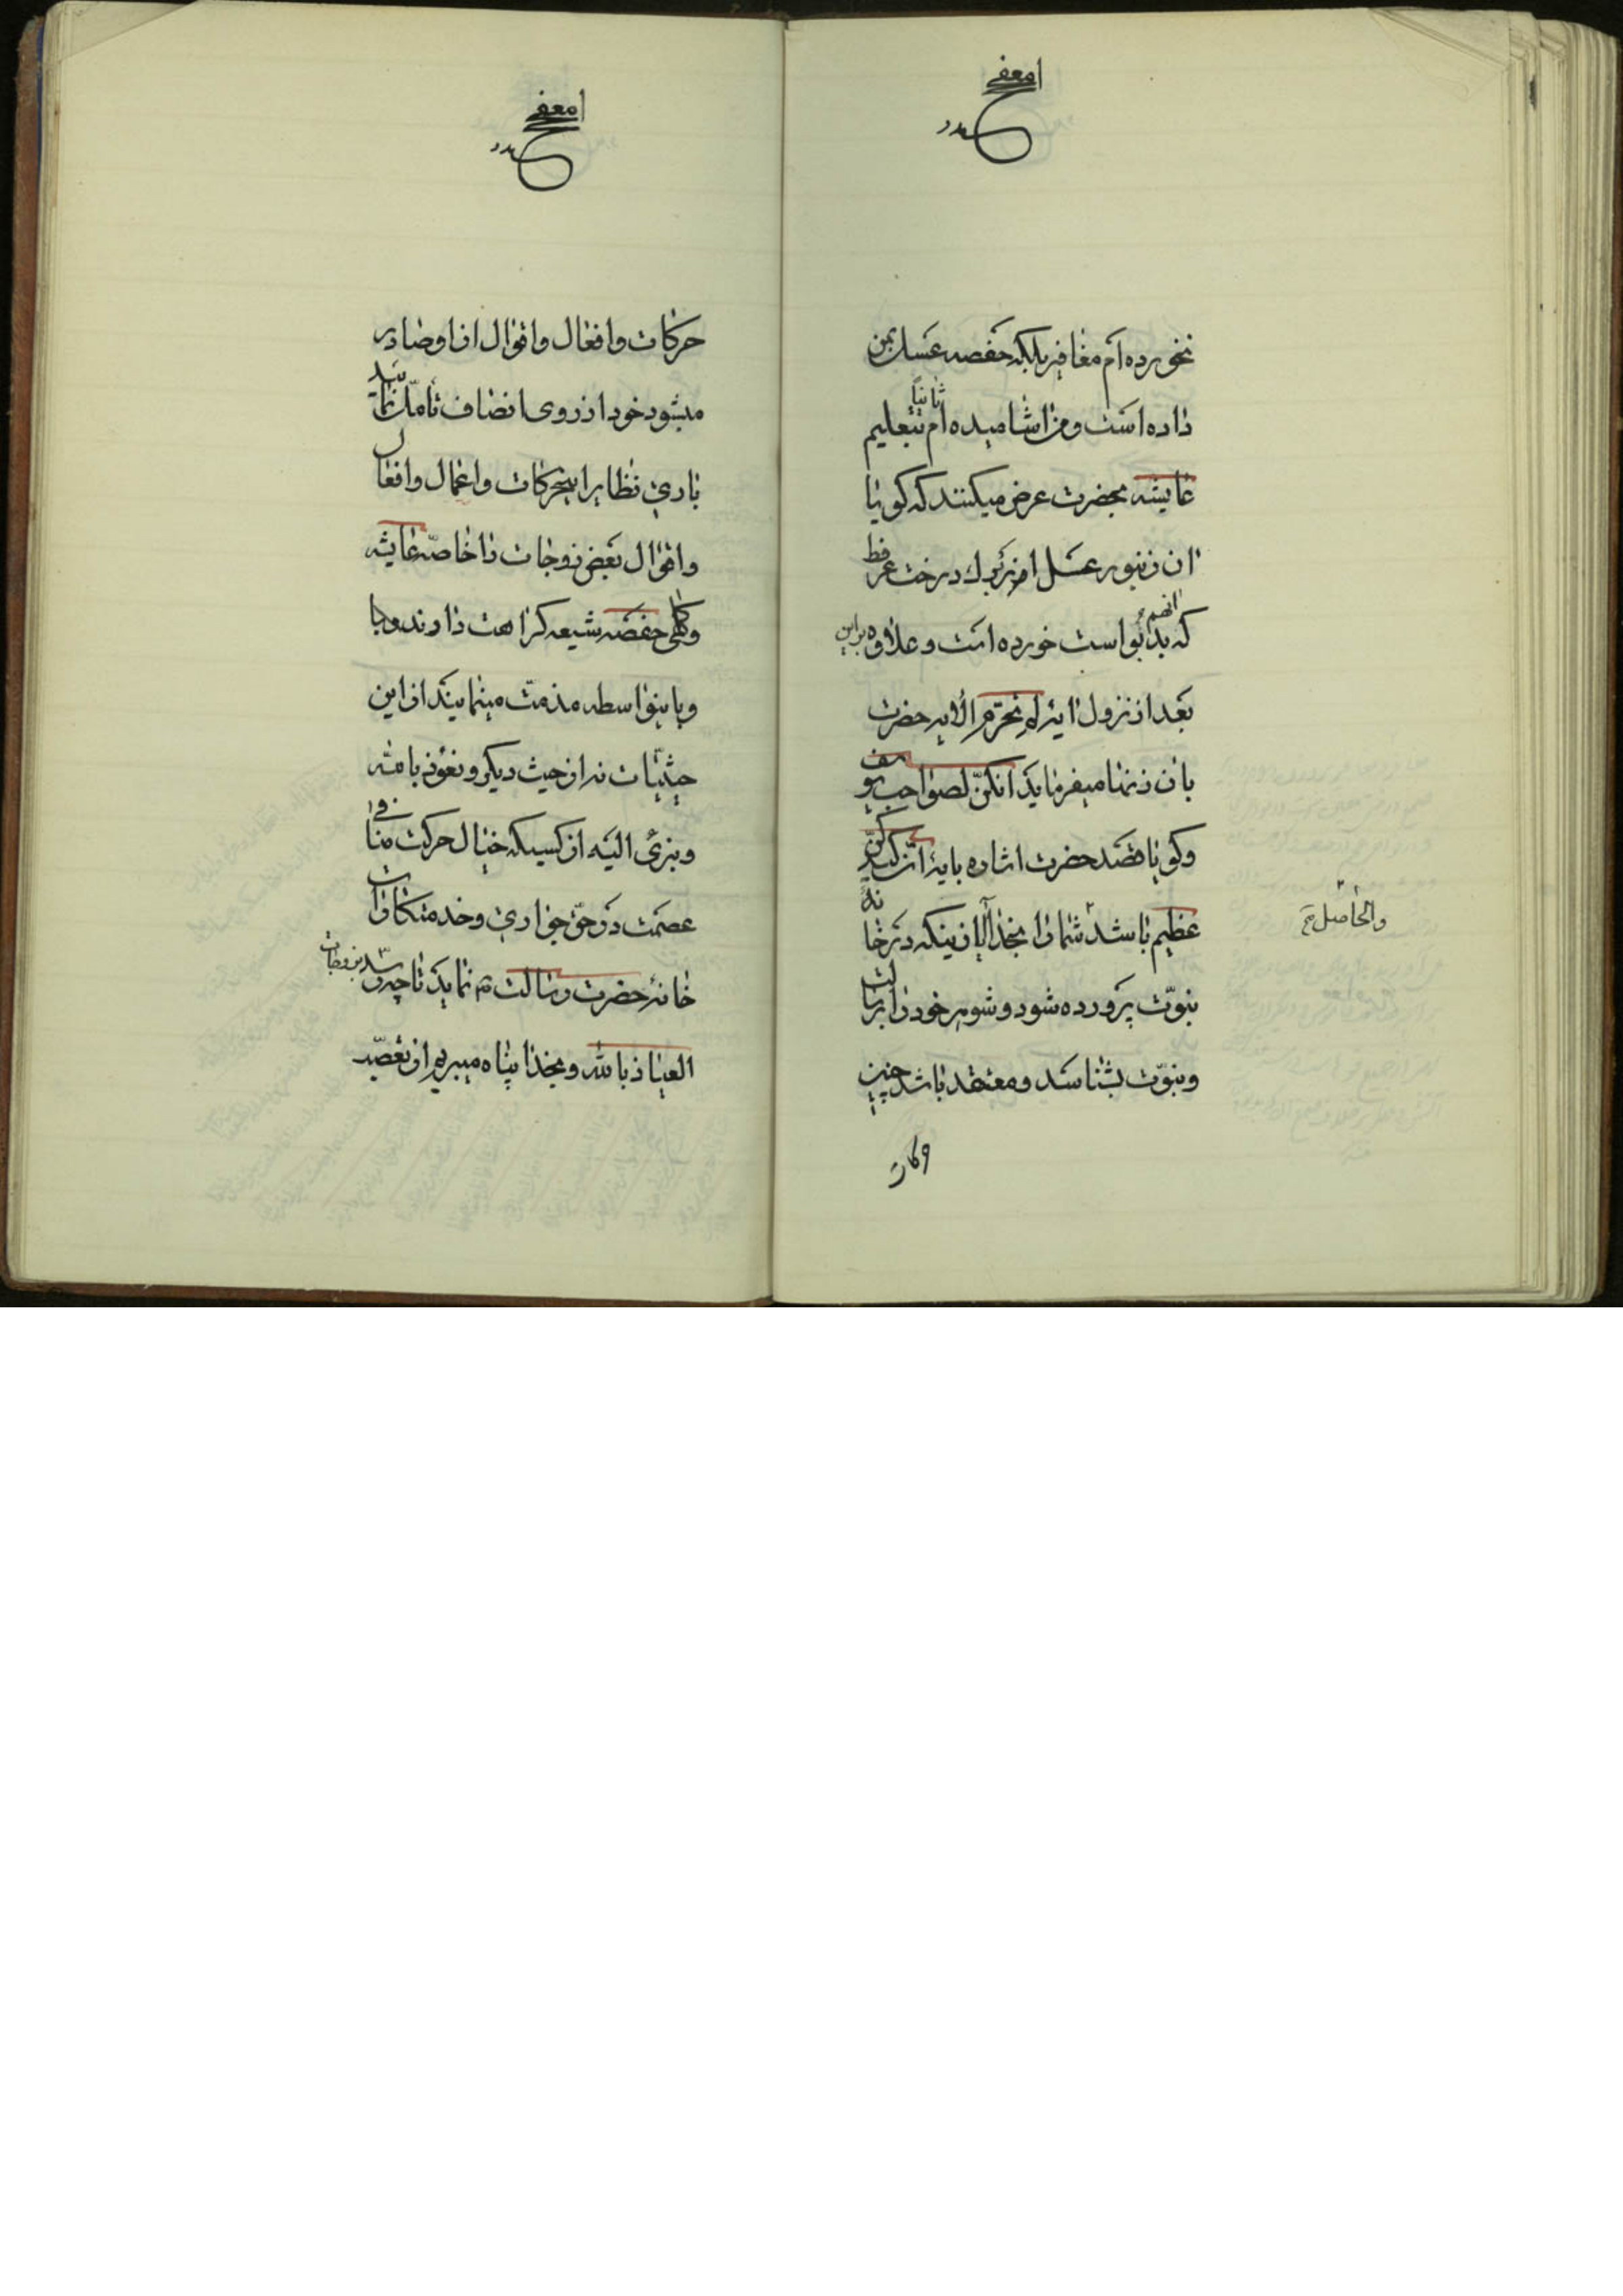 نخورده‌ام مغافیر بلکه حفصه عسل بمن
داده است و من اشامیده‌ام ثانیاً بتعلیم
عایشه بحضرت عرض میکنند که کویا
ان زنبور عسل از برک درخت عرفط
که بدبو است خورده است و علاوه براین
بعد از نزول ایۀ لم تحرّم الایه حضرت
بان زنها میفرماید انکنّ لصواحب یوسف
وکویا قصد حضرت اشاره بایۀ انّ کیدکنّ
عظیم باشد شما را بخدا از اینکه در خانۀ
نبوّت پرورده شود و شوهر خود را برسالت
ونبوّت بشناسد و معتقد باشد چنین
والحاصل
حرکات وافعال واقوال از او صادر
میشود خود از روی انصاف تأمّل نمائید
باری نظایر اینحرکات واعمال وافعال
واقوال بعض زوجات را خاصّه عایشه
وکاهی حفصه شیعه کراهت دارند وبجا
وباینواسطه مذمّت مینمایند از این
حیثیّات نه از حیث دیکر ونعوذ بالله
وبنرئ الیه از کسیکه خیال حرکت منافی
عصمت در حقّ جواری وخدمتکاران
خانۀ حضرت رسالت نماید تا چه رسد بزوجات
العیاذ بالله وبخدا پناه میبریم از تعصّب